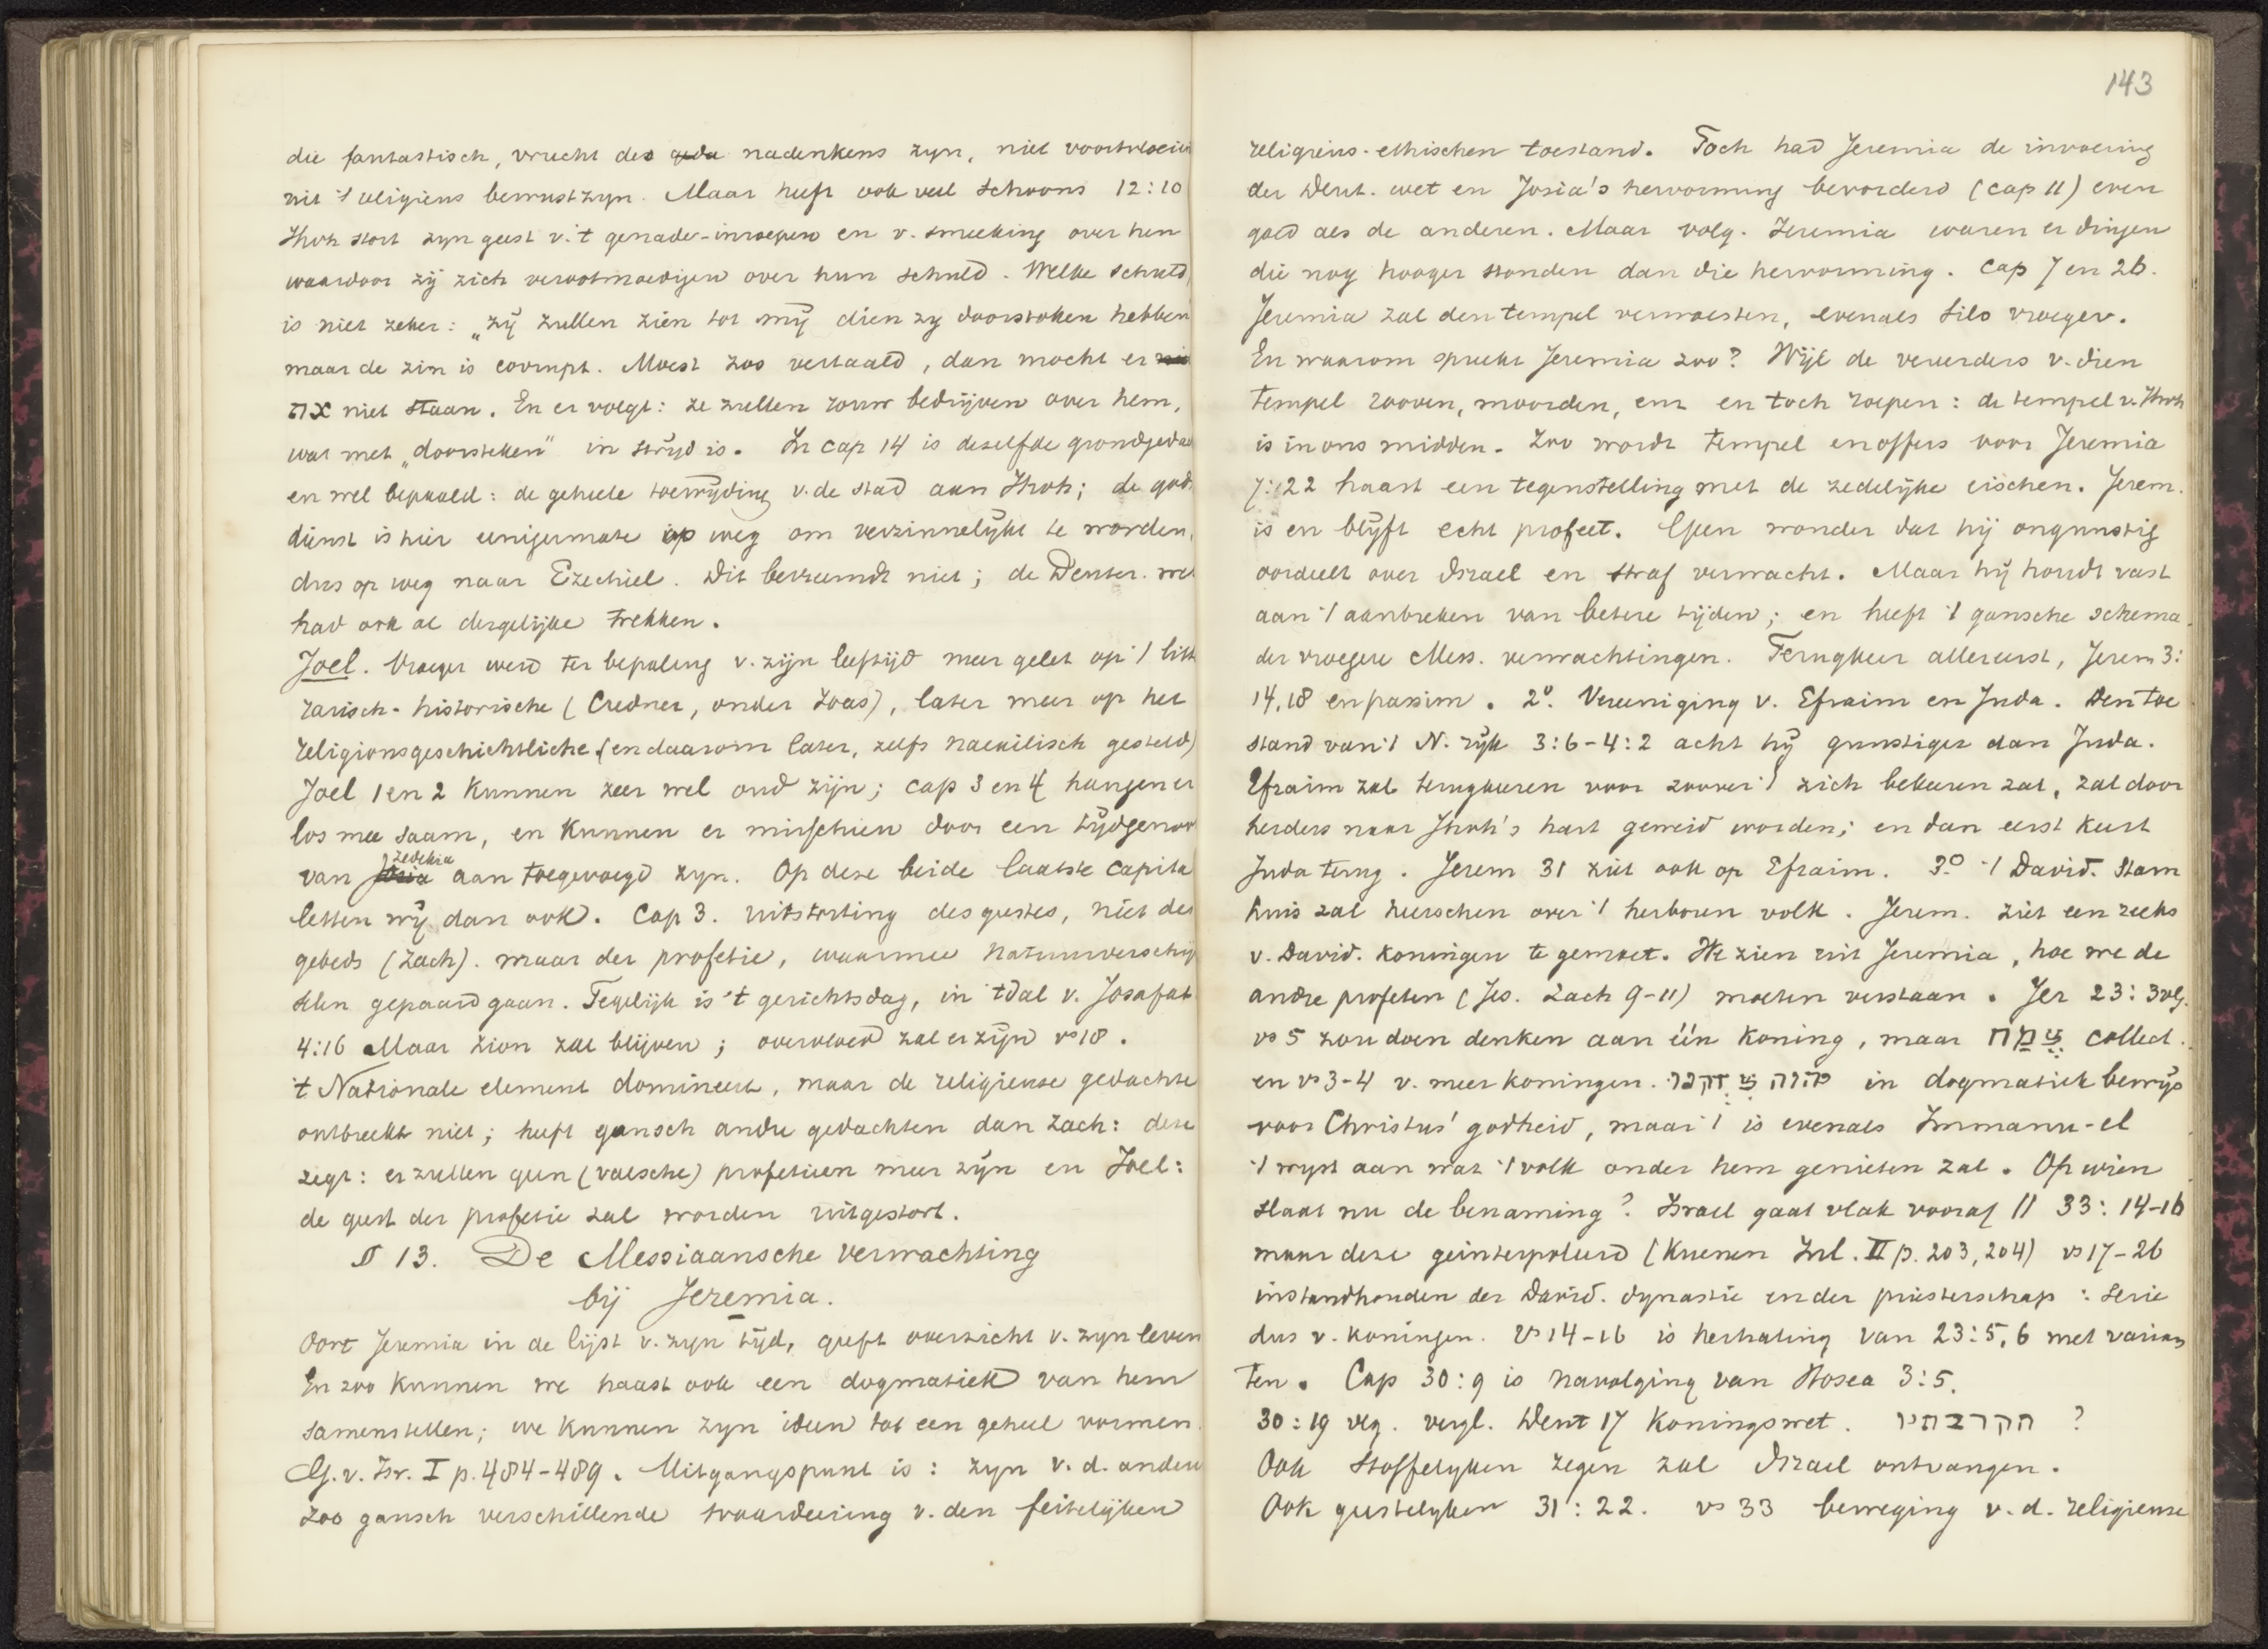 die fantastisch, vrucht des nadenkens zyn, niet voortvloeien
uit 't religieus bewustzyn. Maar heeft ook veel schoons 12:10
Jhvh stort zyn geest v. 't genade-inroepen en v. smeeking over hen
waardoor zij zich verootmoedigen over hun schuld. Welke schuld,
is niet zeker: „zij zullen zien tot mij dien zy doorstoken hebben"
maar de zin is corrupt. Moest zoo vertaald, dan mocht er
את niet staan. En er volgt: ze zullen rouw bedrijven over hem,
wat met „doorsteken" in strijd is. In cap 14 is dezelfde grondgedac
en wel bepaald: de geheele toewijding v. de stad aan Jhvh; de gods
dienst is hier eenigermate op weg om verzinnelijkt te worden,
dus op weg naar Ezechiel. Dit bevreemdt niet; de Deuter. wet
had ook al dergelijke trekken.
Joel. Vroeger werd ter bepaling v. zijn leeftijd meer gelet op 't litt
rarisch-historische (Credner, onder Joas), later meer op het
religionsgeschichtliche (en daarom later, zelfs naexilisch gesteld)
Joel 1 en 2 kunnen zeer wel oud zijn; cap 3 en 4 hangen er
los mee saam, en kunnen er misschien door een tijdgenoo
van Zedekia aan toegevoegd zyn. Op deze beide laatste capita
letten wij dan ook. Cap 3. uitstorting des geestes, niet des
gebeds (Zach). maar der profetie, waarmee natuurverschij
selen gepaard gaan. Tegelijk is 't gerichtsdag, in 't dal v. Josafat
4:16 Maar Zion zal blijven; overvloed zal er zijn vs 18.
't Nationale element domineert, maar de religieuse gedachte
ontbreekt niet; heeft gansch andre gedachten dan Zach: deze
zegt: er zullen geen (valsche) profetieen meer zijn en Joel:
de geest der profetie zal worden uitgestort.
§ 13. De Messiaansche verwachting
bij Jeremia.
Oort Jeremia in de lijst v. zyn tijd, geeft overzicht v. zyn leven
En zoo kunnen we haast ook een dogmatiek van hem
samenstellen; we kunnen zyn ideen tot een geheel vormen.
G. v. Isr. I p. 484-489. Uitgangspunt is: zyn v. d. andere
zoo gansch verschillende waardeering v. den feitelijken
143
religieus-ethischen toestand. Toch had Jeremia de invoering
der Deut. wet en Josia's hervorming bevorderd (cap 11) even
goed als de anderen. Maar volg. Jeremia waren er dingen
die nog hooger stonden dan die hervorming. Cap 7 en 26.
Jeremia zal den tempel verwoesten, evenals Silo vroeger.
En waarom spreekt Jeremia zoo? Wijl de vereerders v. dien
tempel rooven, moorden, enz en toch roepen: de tempel v. Jhvh
is in ons midden. Zoo wordt tempel en offers voor Jeremia
7:22 haast een tegenstelling met de zedelijke eischen. Jerem.
is en blijft echt profeet. Geen wonder dat hij ongunstig
oordeelt over Israel en straf verwacht. Maar hij houdt vast
aan 't aanbreken van betere tijden; en heeft 't gansche schema
der vroegere Mess. verwachtingen. Terugkeer allereerst, Jerem 3:
14,18 en passim. 2º. Vereeniging v. Efraim en Juda. Den toe
stand van 't N. rijk 3:6-4:2 acht hij gunstiger dan Juda.
Efraim zal terugkeeren voor zoover 't zich bekeeren zal, zal door
herders naar Jhvh's hart geweid worden; en dan eerst keert
Juda terug. Jerem 31 ziet ook op Efraim. 3º 't David. Stam
huis zal heerschen over 't herboren volk. Jerem. ziet een reeks
v. David. koningen te gemoet. We zien uit Jeremia, hoe we de
andre profeten (Jes. Zach 9-11) moeten verstaan. Jer 23:3vlg.
vs 5 zou doen denken aan één koning, maar צמח collect.
en vs 3-4 v. meer koningen. יהוה צדקנו in dogmatiek bewijs
voor Christus' godheid, maar 't is evenals Immanu-el
't wyst aan wat 't volk onder hem genieten zal. Op wien
slaat nu de benaming? Israel gaat vlak vooraf || 33:14-16
maar deze geinterpoleerd (Kuenen Inl. II p. 203, 204) vs 17-26
instandhouden der David. dynastie en der priesterschap: serie
dus v. koningen. Vs 14-16 is herhaling van 23:5,6 met varian
ten. Cap 30:9 is navolging van Hosea 3:5.
30:19 vlg. vergl. Deut 17 Koningswet. הקרבתיו ?
Ook stoffelyken zegen zal Israel ontvangen.
Ook geestelyken 31:22. vs 33 beweging v. d. religieuse